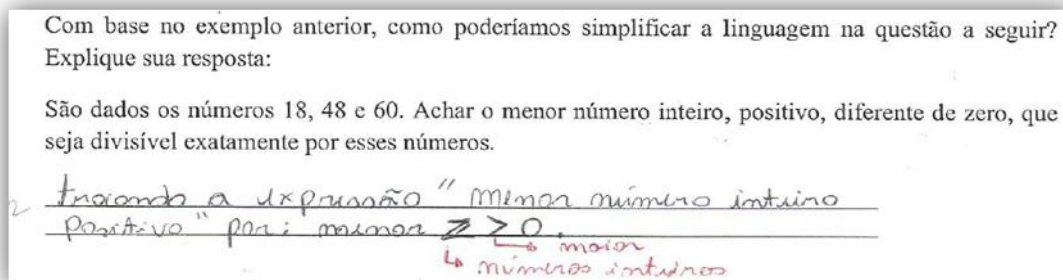 Com base no exemplo anterior, como poderíamos simplificar a linguagem na questão a seguir?
Explique sua resposta:
São dados os números 18, 48 e 60. Achar o menor número inteiro, positivo, diferente de zero, que
seja divisível exatamente por esses números.
trocando a expressão "menor número inteiro
Positivo" por: menor Z > 0.
↳ maior
↳ números inteiros